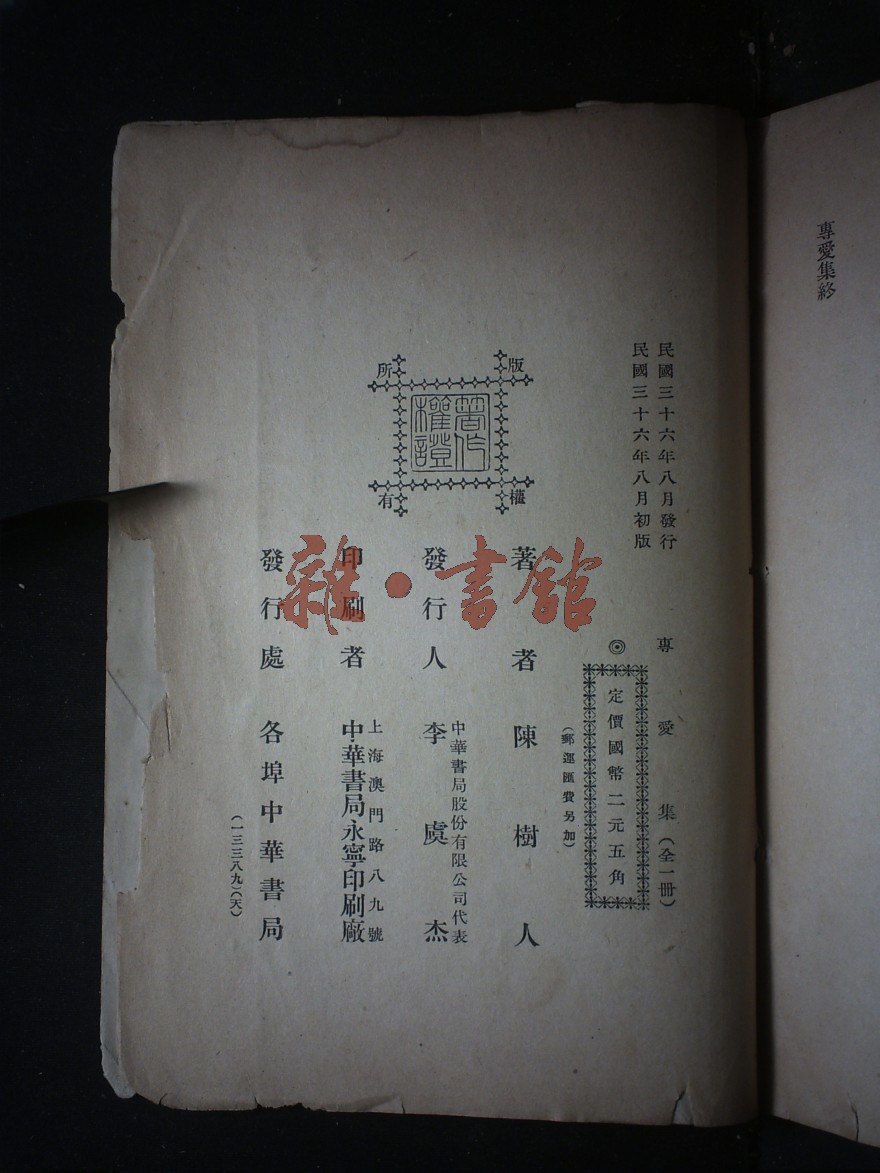 專愛集終
民國三十六年八月發行
民國三十六年八月初版
專愛集(全一冊)
◎定價國幣二元五角
(郵運匯費另加)
版權所有
著作權證
著者 陳樹人
發行人 中華書局股份有限公司代表
李虞杰
印刷者 上海澳門路八九號
中華書局永寧印刷廠
發行處 各埠中華書局
(一三三八九)(天)
雜·書館